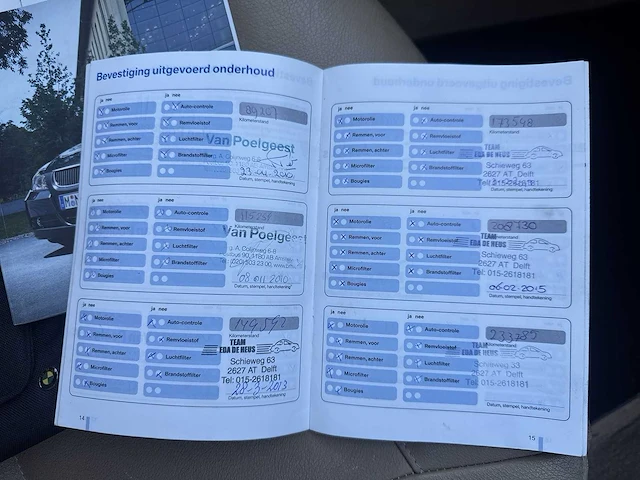 Bevestiging uitgevoerd onderhoud
ja nee
ja nee
Motorolie
Auto-controle
Remmen, voor
Remvloeistof
Kilometerstand
Remmen, achter
Luchtfilter
Van Poelgeest
Microfilter
Brandstoffilter
Bougies
Datum, stempel, handtekening
ja nee
ja nee
Motorolie
Auto-controle
Remmen, voor
Remvloeistof
Kilometerstand
Van Poelgeest
Remmen, achter
Luchtfilter
Microfilter
Brandstoffilter
Bougies
08 011 2010
Datum, stempel, handtekening
ja nee
ja nee
Motorolie
Auto-controle
149592
Kilometerstand
Remmen, voor
Remvloeistof
TEAM
EDA DE HEUS
Remmen, achter
Luchtfilter
Schieweg 63
2627 AT Delft
Microfilter
Brandstoffilter
Tel: 015-2618181
Bougies
28-3-2013
Datum, stempel, handtekening
14
ja nee
ja nee
Motorolie
Auto-controle
173598
Kilometerstand
Remmen, voor
Remvloeistof
TEAM
EDA DE HEUS
Remmen, achter
Luchtfilter
Schieweg 63
2627 AT Delft
Microfilter
Brandstoffilter
Bougies
Datum, stempel, handtekening
ja nee
ja nee
Motorolie
Auto-controle
208730
Kilometerstand
Remmen, voor
Remvloeistof
TEAM
EDA DE HEUS
Remmen, achter
Luchtfilter
Schieweg 63
2627 AT Delft
Microfilter
Brandstoffilter
Tel: 015-2618181
Bougies
06-02-2015
Datum, stempel, handtekening
ja nee
ja nee
Motorolie
Auto-controle
233785
Kilometerstand
Remmen, voor
Remvloeistof
TEAM
EDA DE HEUS
Remmen, achter
Luchtfilter
Schieweg 63
2627 AT Delft
Microfilter
Brandstoffilter
Tel: 015-2618181
Bougies
Datum, stempel, handtekening
15